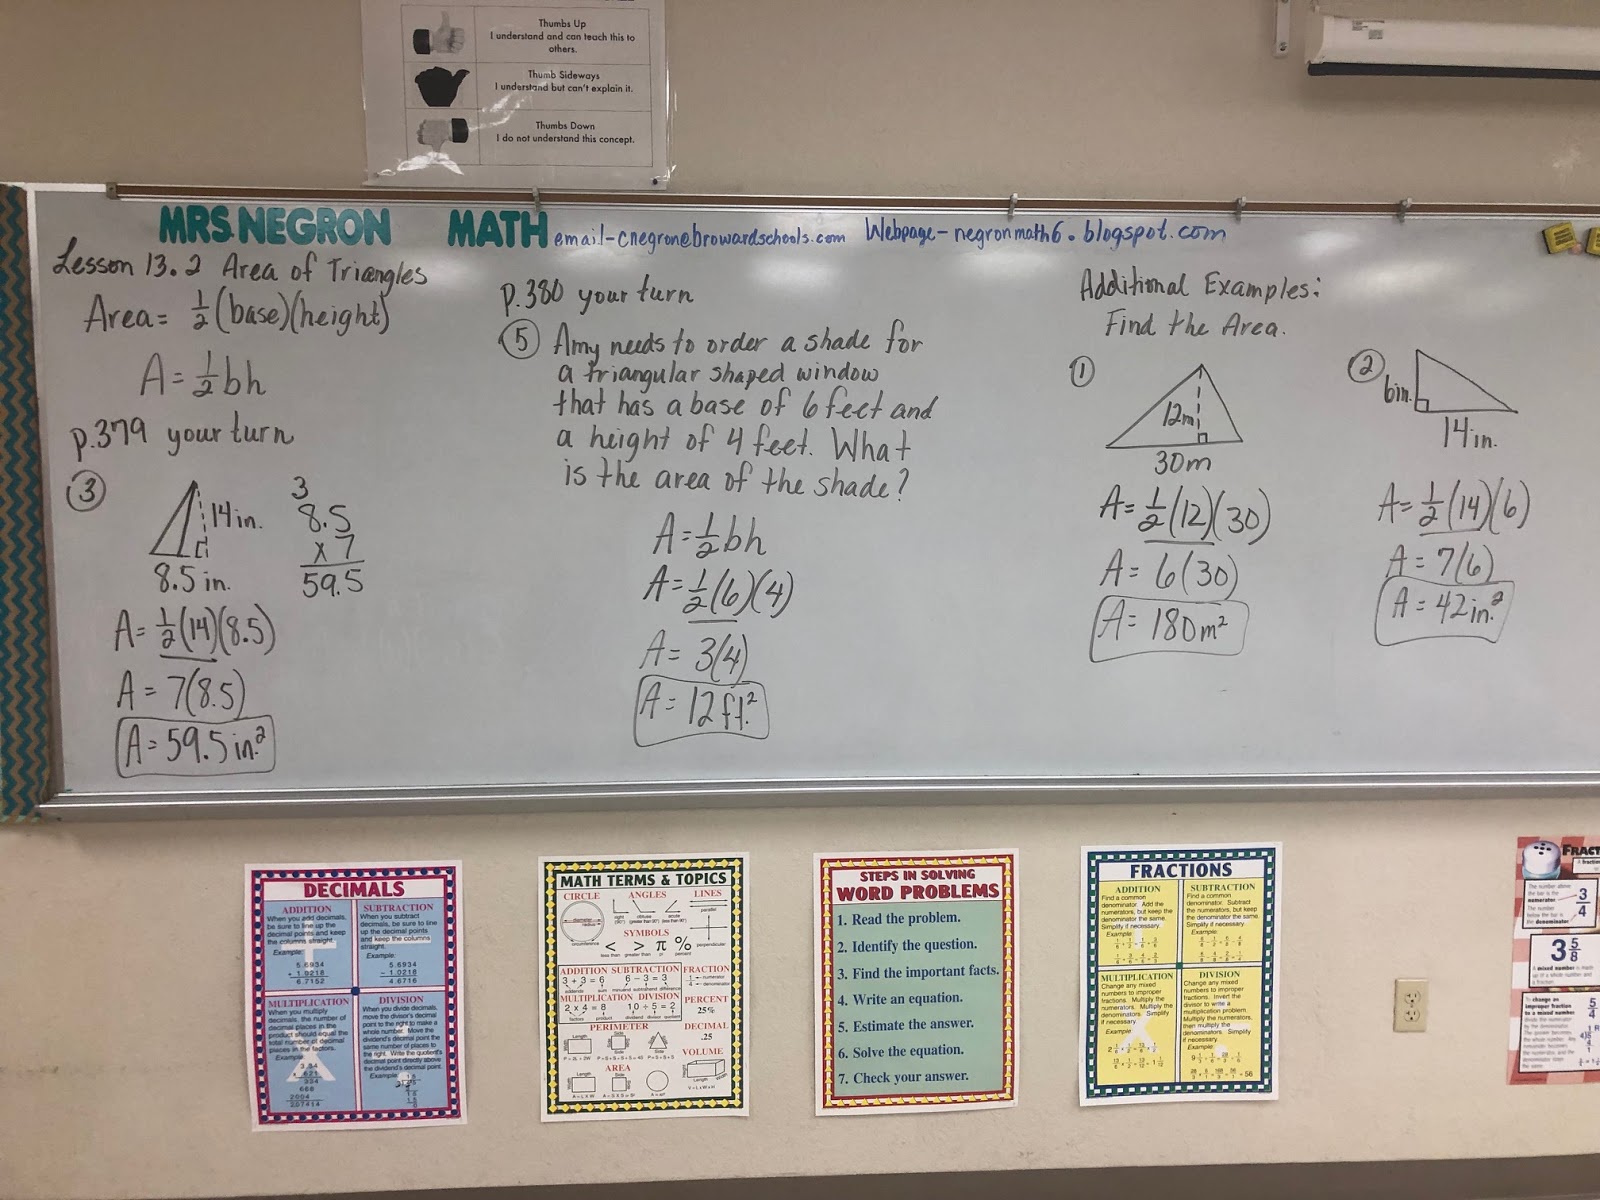 Thumbs Up
I understand and can teach this to
others.
Thumb Sideways
I understand but can't explain it.
Thumbs Down
I do not understand this concept.
MRS. NEGRON MATH email-cnegron@browardschools.com Webpage-negronmath6.blogspot.com
Lesson 13.2 Area of Triangles
Area = 1/2 (base)(height)
A = 1/2 bh
p.379 your turn
3
14 in.
8.5 in.
3
8.5
x 7
59.5
A = 1/2 (14)(8.5)
A = 7(8.5)
A = 59.5 in.²
p.380 your turn
5 Amy needs to order a shade for
a triangular shaped window
that has a base of 6 feet and
a height of 4 feet. What
is the area of the shade?
A = 1/2 bh
A = 1/2 (6)(4)
A = 3(4)
A = 12 ft.²
Additional Examples:
Find the Area.
1
12m
30m
A = 1/2 (12)(30)
A = 6(30)
A = 180m²
2
6in.
14in.
A = 1/2 (14)(6)
A = 7(6)
A = 42in.²
DECIMALS
ADDITION
When you add decimals,
be sure to line up the
decimal points and keep
the columns straight.
Example:
5.6934
+ 1.0218
6.7152
SUBTRACTION
When you subtract
decimals, be sure to line
up the decimal points
and keep the columns
straight.
Example:
5.6934
- 1.0218
4.6716
MULTIPLICATION
When you multiply
decimals, the number of
decimal places in the
product should equal the
total number of decimal
places in the factors.
Example:
DIVISION
When you divide decimals,
move the divisor's decimal
point to the right to make a
whole number. Move the
dividend's decimal point the
same number of places to
the right. Write the quotient's
decimal point directly above
the dividend's decimal point.
Example:
MATH TERMS & TOPICS
CIRCLE
diameter
radius
circumference
ANGLES
right
obtuse
acute
LINES
parallel
perpendicular
SYMBOLS
< > π %
less than greater than pi percent
ADDITION
3 + 3 = 6
SUBTRACTION
6 - 3 = 3
FRACTION
numerator
denominator
MULTIPLICATION
2 x 4 = 8
DIVISION
10 ÷ 5 = 2
PERCENT
25%
PERIMETER
DECIMAL
.25
AREA
VOLUME
STEPS IN SOLVING
WORD PROBLEMS
1. Read the problem.
2. Identify the question.
3. Find the important facts.
4. Write an equation.
5. Estimate the answer.
6. Solve the equation.
7. Check your answer.
FRACTIONS
ADDITION
Find a common
denominator. Add the
numerators, but keep the
denominator the same.
Simplify if necessary.
Example:
SUBTRACTION
Find a common
denominator. Subtract
the numerators, but keep
the denominator the same.
Simplify if necessary.
Example:
MULTIPLICATION
Change any mixed
numbers to improper
fractions. Multiply the
numerators. Multiply the
denominators. Simplify
if necessary.
Example:
DIVISION
Change any mixed
numbers to improper
fractions. Invert the
divisor to write a
multiplication problem.
Multiply the numerators,
then multiply the
denominators. Simplify
if necessary.
Example:
FRACT
The number above
the bar is the
numerator.
The number
below the bar is
the denominator.
3/4
3 5/8
A mixed number is made